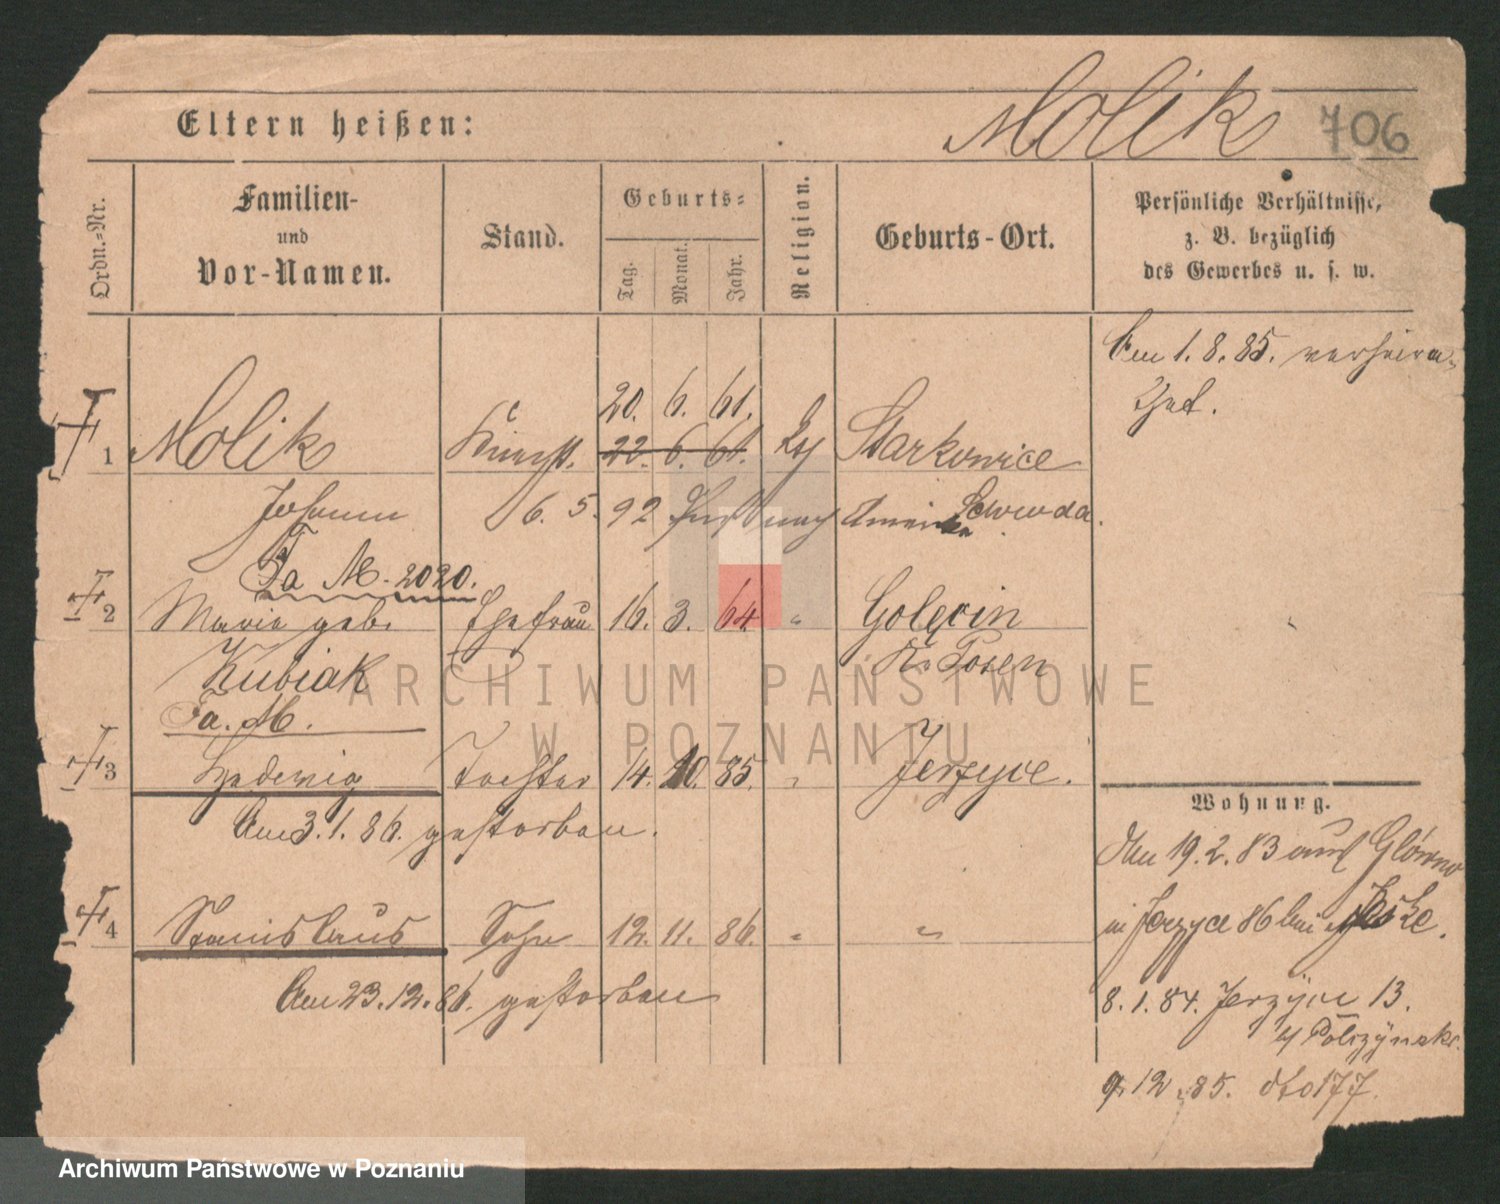 Eltern heißen:
Molik
706
Ordn.-Nr.
Familien-
und
Vor-Namen.
Stand.
Geburts-
Tag.
Monat.
Jahr.
Religion.
Geburts-Ort.
Persönliche Verhältnisse,
z. B. bezüglich
des Gewerbes u. s. w.
Am 1. 8. 85. verheira-
thet.
20. 6. 61.
1 Molik Knecht. 22. 6. 61. Starkowice
Johann 6. 5. 92 nach Amerika
Fa M. 2020.
2 Maria geb. Ehefrau 16. 3. 64. " Golęcin
Kubiak Kr. Posen
Fa. M.
3 Hedewig Tochter 14. 10. 85. " Jerzyce.
Am 3. 1. 86. gestorben.
4 Stanislaus Sohn 12. 11. 86. " "
Am 23. 12. 86. gestorben
Wohnung.
Am 19. 2. 83 aus Główno
in Jerzyce 86 bei Jeske.
8. 1. 84. Jerzyce 13.
9. 12. 85. dto 177.
ARCHIWUM PAŃSTWOWE
W POZNANIU
Archiwum Państwowe w Poznaniu